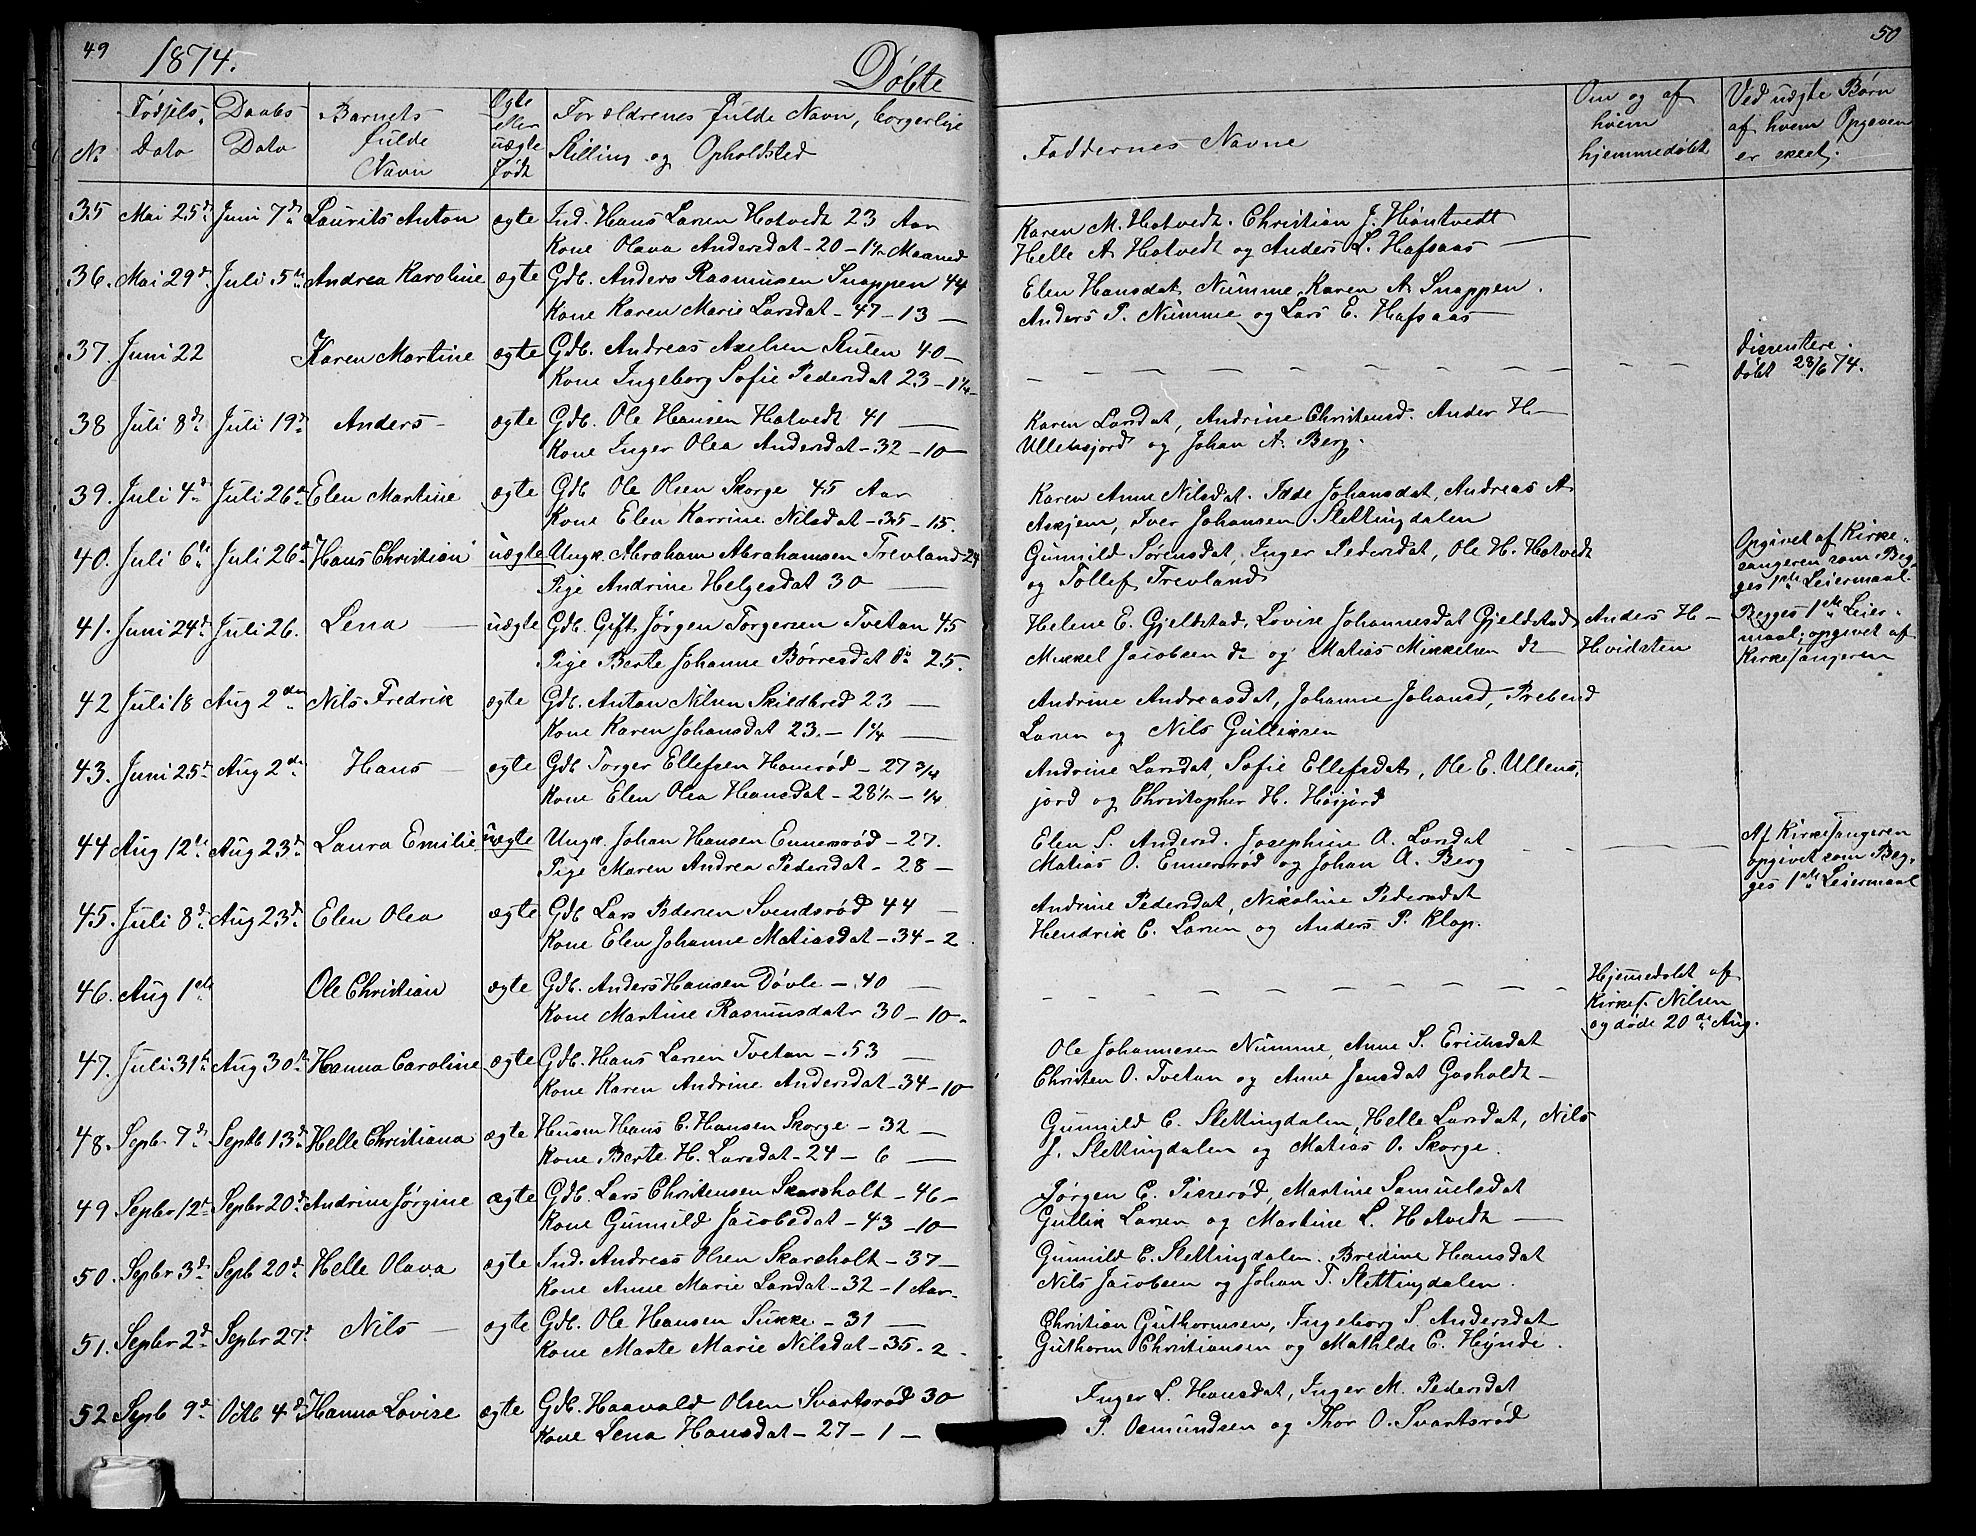 49
1874.
Døbte
50
No
Fødsels. Dato
Daabs Dato
Barnets fulde Navn
Ægte eller uægte Født
Forældrenes fulde Navn, borgerlige
Stilling og Opholdsted
Faddernes Navne
Om og af hvem hjemmedøbt
Ved uægte Børn af hvem Opgaven er skeet.
35 Mai 25de Juni 7de Laurits Anton ægte Ind. Hans Larsen Hotvedt 23 Aar
Kone Olava Andersdat - 20 - 1½ Maaned
Karen M. Hotvedt. Christian J. Høntvedt
Helle A. Hotvedt og Anders L. Hafsaas
36. Mai 29de Juli 5te Andrea Karoline ægte Gdb. Anders Rasmusen Snappen 44
Kone Karen Marie Larsdat - 47 - 13 —
Elen Hansdat Nümme, Karen A. Snappen.
Anders P. Nümme og Lars E. Hafsaas
37. Juni 22 Karen Martine ægte Gdb. Andreas Axelsen Stulen 40 —
Kone Ingeborg Sofie Pedersdat 23 - 1¼
Disentere.
døbt 28/6 74.
38 Juli 8de Juli 19de Anders ægte Gdb. Ole Hansen Hotvedt 41 —
Kone Inger Olea Andersdat - 32 - 10 —
Karen Larsdat, Andrine Christensd. Ander H.
Ullensjord og Johan A. Berg.
39. Juli 4de Juli 26de Elen Martine ægte Gdb Ole Olsen Skorge 45 Aar
Kone Elen Karrine Nilsdat - 35 - 15.
Karen Anne Nilsdat. Tede Johansdat, Andreas A.
Askjem, Iver Johansen Slettingdalen
40. Juli 6te Juli 26de Hans Christian uægte Ungk. Abraham Abrahamsen Trevland 24
Pige Andrine Helgesdat 30 —
Gunnild Sørensdat, Inger Pedersdat, Ole H. Hotvedt
og Tollef Trevland
Opgivet af Kirke-
sangeren som Beg-
ges 1ste Leiermaal.
41. Juni 24de Juli 26. Lena uægte Gdb. Gift. Jørgen Torgersen Tvetan 45
Pige Berte Johanne Børresdat do 25.
Helene E. Gjelstad, Lovise Johannesdat Gjelstad
Mikkel Jacobsen do og Matias Mikkelsen do
Anders H
Hvidsten
Begges 1ste Leier-
maal; opgivet af
Kirkesangeren
42 Juli 18 Aug 2den Nils Fredrik ægte Gdb. Anton Nilsen Skildbred 23 —
Kone Karen Johansdat 23. - 1¼ —
Andrine Andreasdat, Johanne Johansd, Prebend
Larsen og Nils Gulliksen
43. Juni 25de Aug 2de Hans ægte Gdb Torger Ellefsen Homrød - 27¾
Kone Elen Olea Hansdat - 28½ - ¼
Andrine Larsdat, Sofie Ellefsdat, Ole E. Ullens,
jord og Christopher H. Høijord
44 Aug 12te Aug 23de Laura Emilie uægte Ungk. Johan Hansen Ennersrød - 27.
Pige Maren Andrea Pedersdat - 28 —
Elen S. Andersd. Josephine A. Larsdat
Matias O. Ennersrød og Johan A. Berg
Af Kirkesangeren
opgivet som Beg-
ges 1ste Leiermaal
45. Juli 8de Aug 23de Elen Olea ægte Gdb Lars Pedersen Svendsrød 44 —
Kone Elen Johanne Matiasdat - 34 - 2
Andrine Pedersdat, Nikoline Pedersdat
Hendrik C. Larsen og Anders P. Klop.
46. Aug 1ste Ole Christian ægte Gdb. Anders Hansen Døvle - 40 —
Kone Martine Rasmusdatr 30 - 10 -
Hjemedøbt af
Kirkes. Nilsen
og døde 20de Aug.
47. Juli 31te Aug 30te Hanna Caroline ægte Gdb. Hans Larsen Tvetan - 53 —
Kone Karen Andrine Andersdat - 34 - 10
Ole Johannesen Nümme, Anne S. Ericksdat
Christen O. Tvetan og Anne Jensdat Gasholdt
48. Sepb. 7de Septb 13de Helle Christiana ægte Husm Hans C. Hansen Skorge - 32 —
Kone Berte H. Larsdat - 24 - 6 —
Gunnild C. Slettingdalen, Helle Larsdat, Nils
J. Slettingdalen og Matias O. Skorge.
49 Sepbr 12te Sepbr 20de Andrine Jørgine ægte Gdb. Lars Christensen Skarsholt - 46 -
Kone Gunnild Jacobsdat - 43 - 10 —
Jørgen C. Pisserød, Martine Samuelsdat
Gullik Larsen og Martine L. Hotvedt
50. Sepbr 3de Sepb 20de Helle Olava ægte Ind. Andreas Olsen Skarsholt - 37 -
Kone Anne Marie Larsdat - 32 - 1 Aar.
Gunnild C. Slettingdalen. Bredine Hansdat
Nils Jacobsen og Johan T. Slettingdalen.
51. Sepbr 2de Sepbr 27de Nils ægte Gdb. Ole Hansen Sukke - 31 —
Kone Marte Marie Nilsdat - 35 - 2 -
Christian Guthormsen, Ingeborg S. Andersdat
Guthorm Christiansen og Mathilde C. Hynde.
52 Sepb 9de Octb 4de Hanna Lovise ægte Gdb. Haavald Olsen Svartsrød 30
Kone Lena Hansdat - 27 - 1 —
Inger L. Hansdat, Inger M. Pedersdat
P. Osmundsen og Thor O. Svartsrød